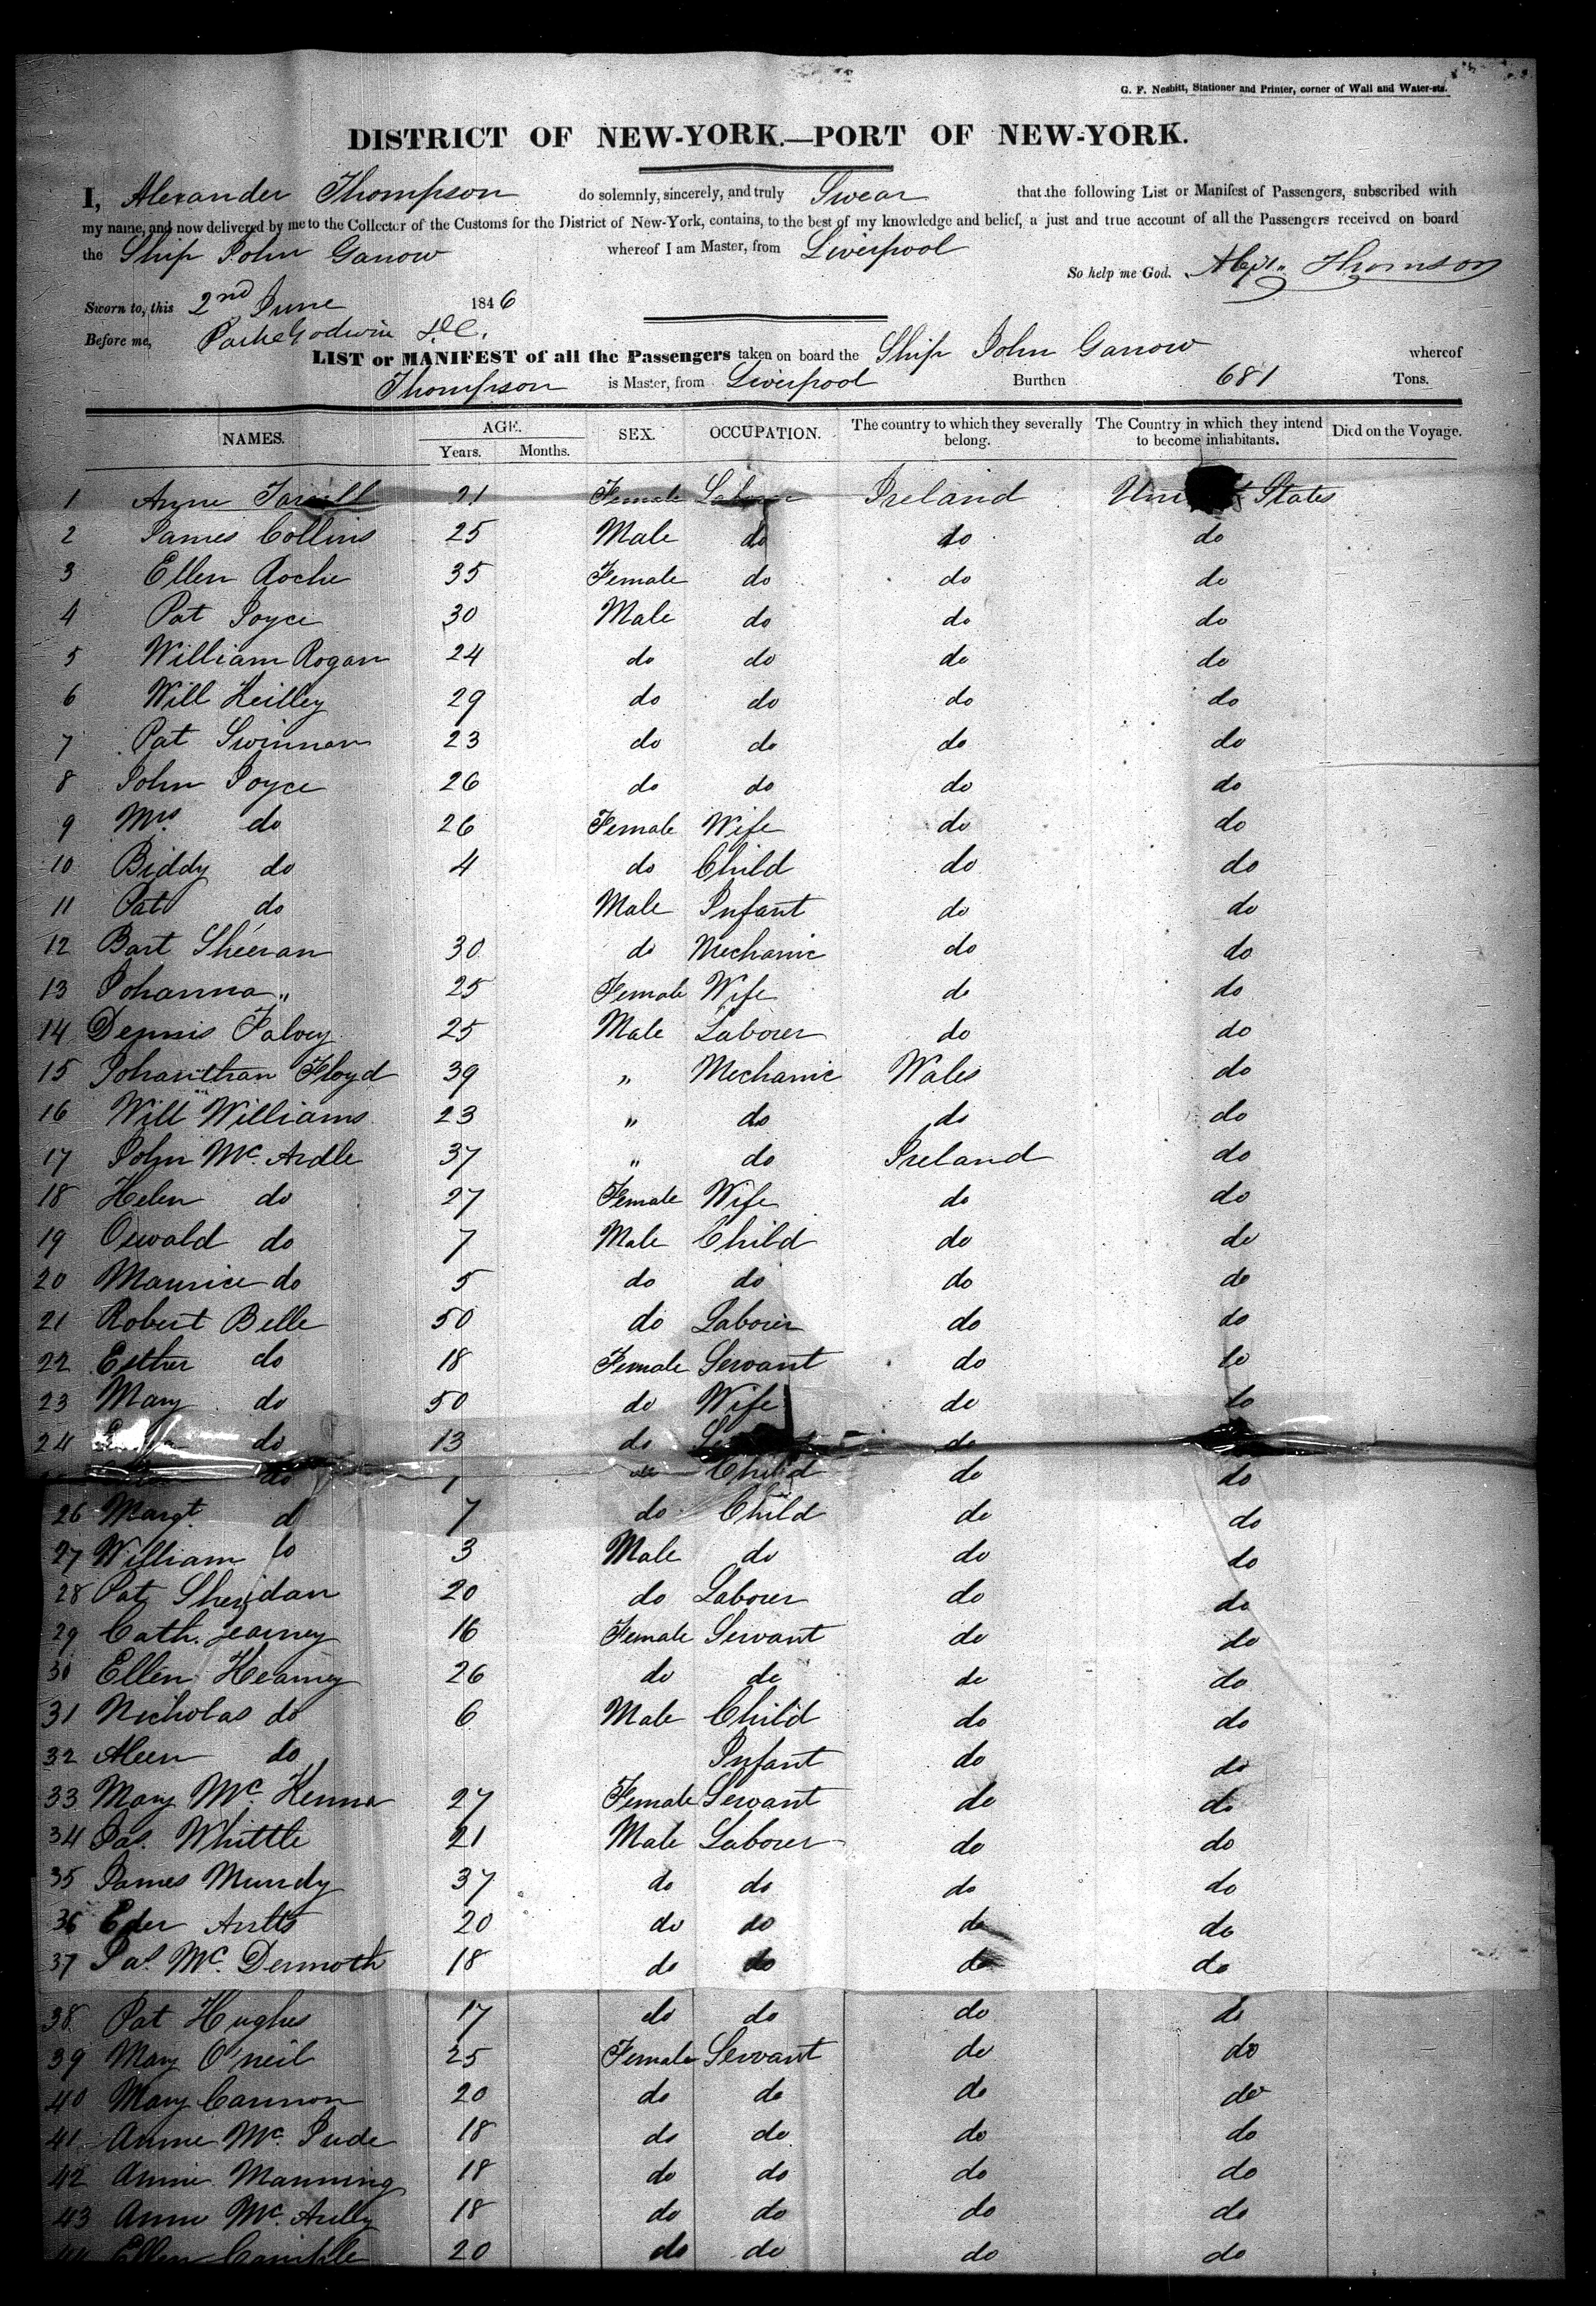 G. F. Nesbitt, Stationer and Printer, corner of Wall and Water-sts.
DISTRICT OF NEW-YORK.—PORT OF NEW-YORK.
I, Alexander Thompson do solemnly, sincerely, and truly Swear that the following List or Manifest of Passengers, subscribed with
my name, and now delivered by me to the Collector of the Customs for the District of New-York, contains, to the best of my knowledge and belief, a just and true account of all the Passengers received on board
the Ship John Garrow whereof I am Master, from Liverpool
So help me God. Alexr. Thomson
Sworn to, this 2nd June 1846
Before me, Parke Godwin D.C.
LIST or MANIFEST of all the Passengers taken on board the Ship John Garrow whereof
Thompson is Master, from Liverpool Burthen 681 Tons.
NAMES. AGE. Years. Months. SEX. OCCUPATION. The country to which they severally belong. The Country in which they intend to become inhabitants. Died on the Voyage.
1 Anne 21 Female Ireland States
2 James Collins 25 Male do do do
3 Ellen Roche 35 Female do do do
4 Pat Joyce 30 Male do do do
5 William Rogan 24 do do do do
6 Will Keilley 29 do do do do
7 Pat Swinnan 23 do do do do
8 John Joyce 26 do do do do
9 Mrs do 26 Female Wife do do
10 Biddy do 4 do Child do do
11 Pat do Male Infant do do
12 Bart Sheeran 30 do Mechanic do do
13 Johanna " 25 Female Wife do do
14 Dennis Falvey 25 Male Laborer do do
15 Johanthan Floyd 39 " Mechanic Wales do
16 Will Williams 23 " do do do
17 John Mc. Ardle 37 " do Ireland do
18 Helen do 27 Female Wife do do
19 Oswald do 7 Male Child do do
20 Maurice do 5 do do do do
21 Robert Belle 50 do Laborer do do
22 Esther do 18 Female Servant do do
23 Mary do 50 do Wife do do
24 do 13 do do
do 1 do Child do do
26 Margt. d 7 do Child do do
27 William do 3 Male do do do
28 Pat Sheridan 20 do Laborer do do
29 Cath. 16 Female Servant do do
30 Ellen Kearney 26 do do do do
31 Nicholas do 6 Male Child do do
32 do Infant do do
33 Mary Mc. Kenna 27 Female Servant do do
34 Jas. Whittle 21 Male Laborer do do
35 James Mundy 37 do do do do
36 20 do do do do
37 Jas. Mc. Dermoth 18 do do do do
38 Pat Hughes 17 do do do do
39 Mary O'neil 25 Female Servant do do
40 Mary Cannon 20 do do do do
41 Anne Mc. 18 do do do do
42 Annie Manning 18 do do do do
43 Anne Mc. 18 do do do do
Ellen 20 do do do do